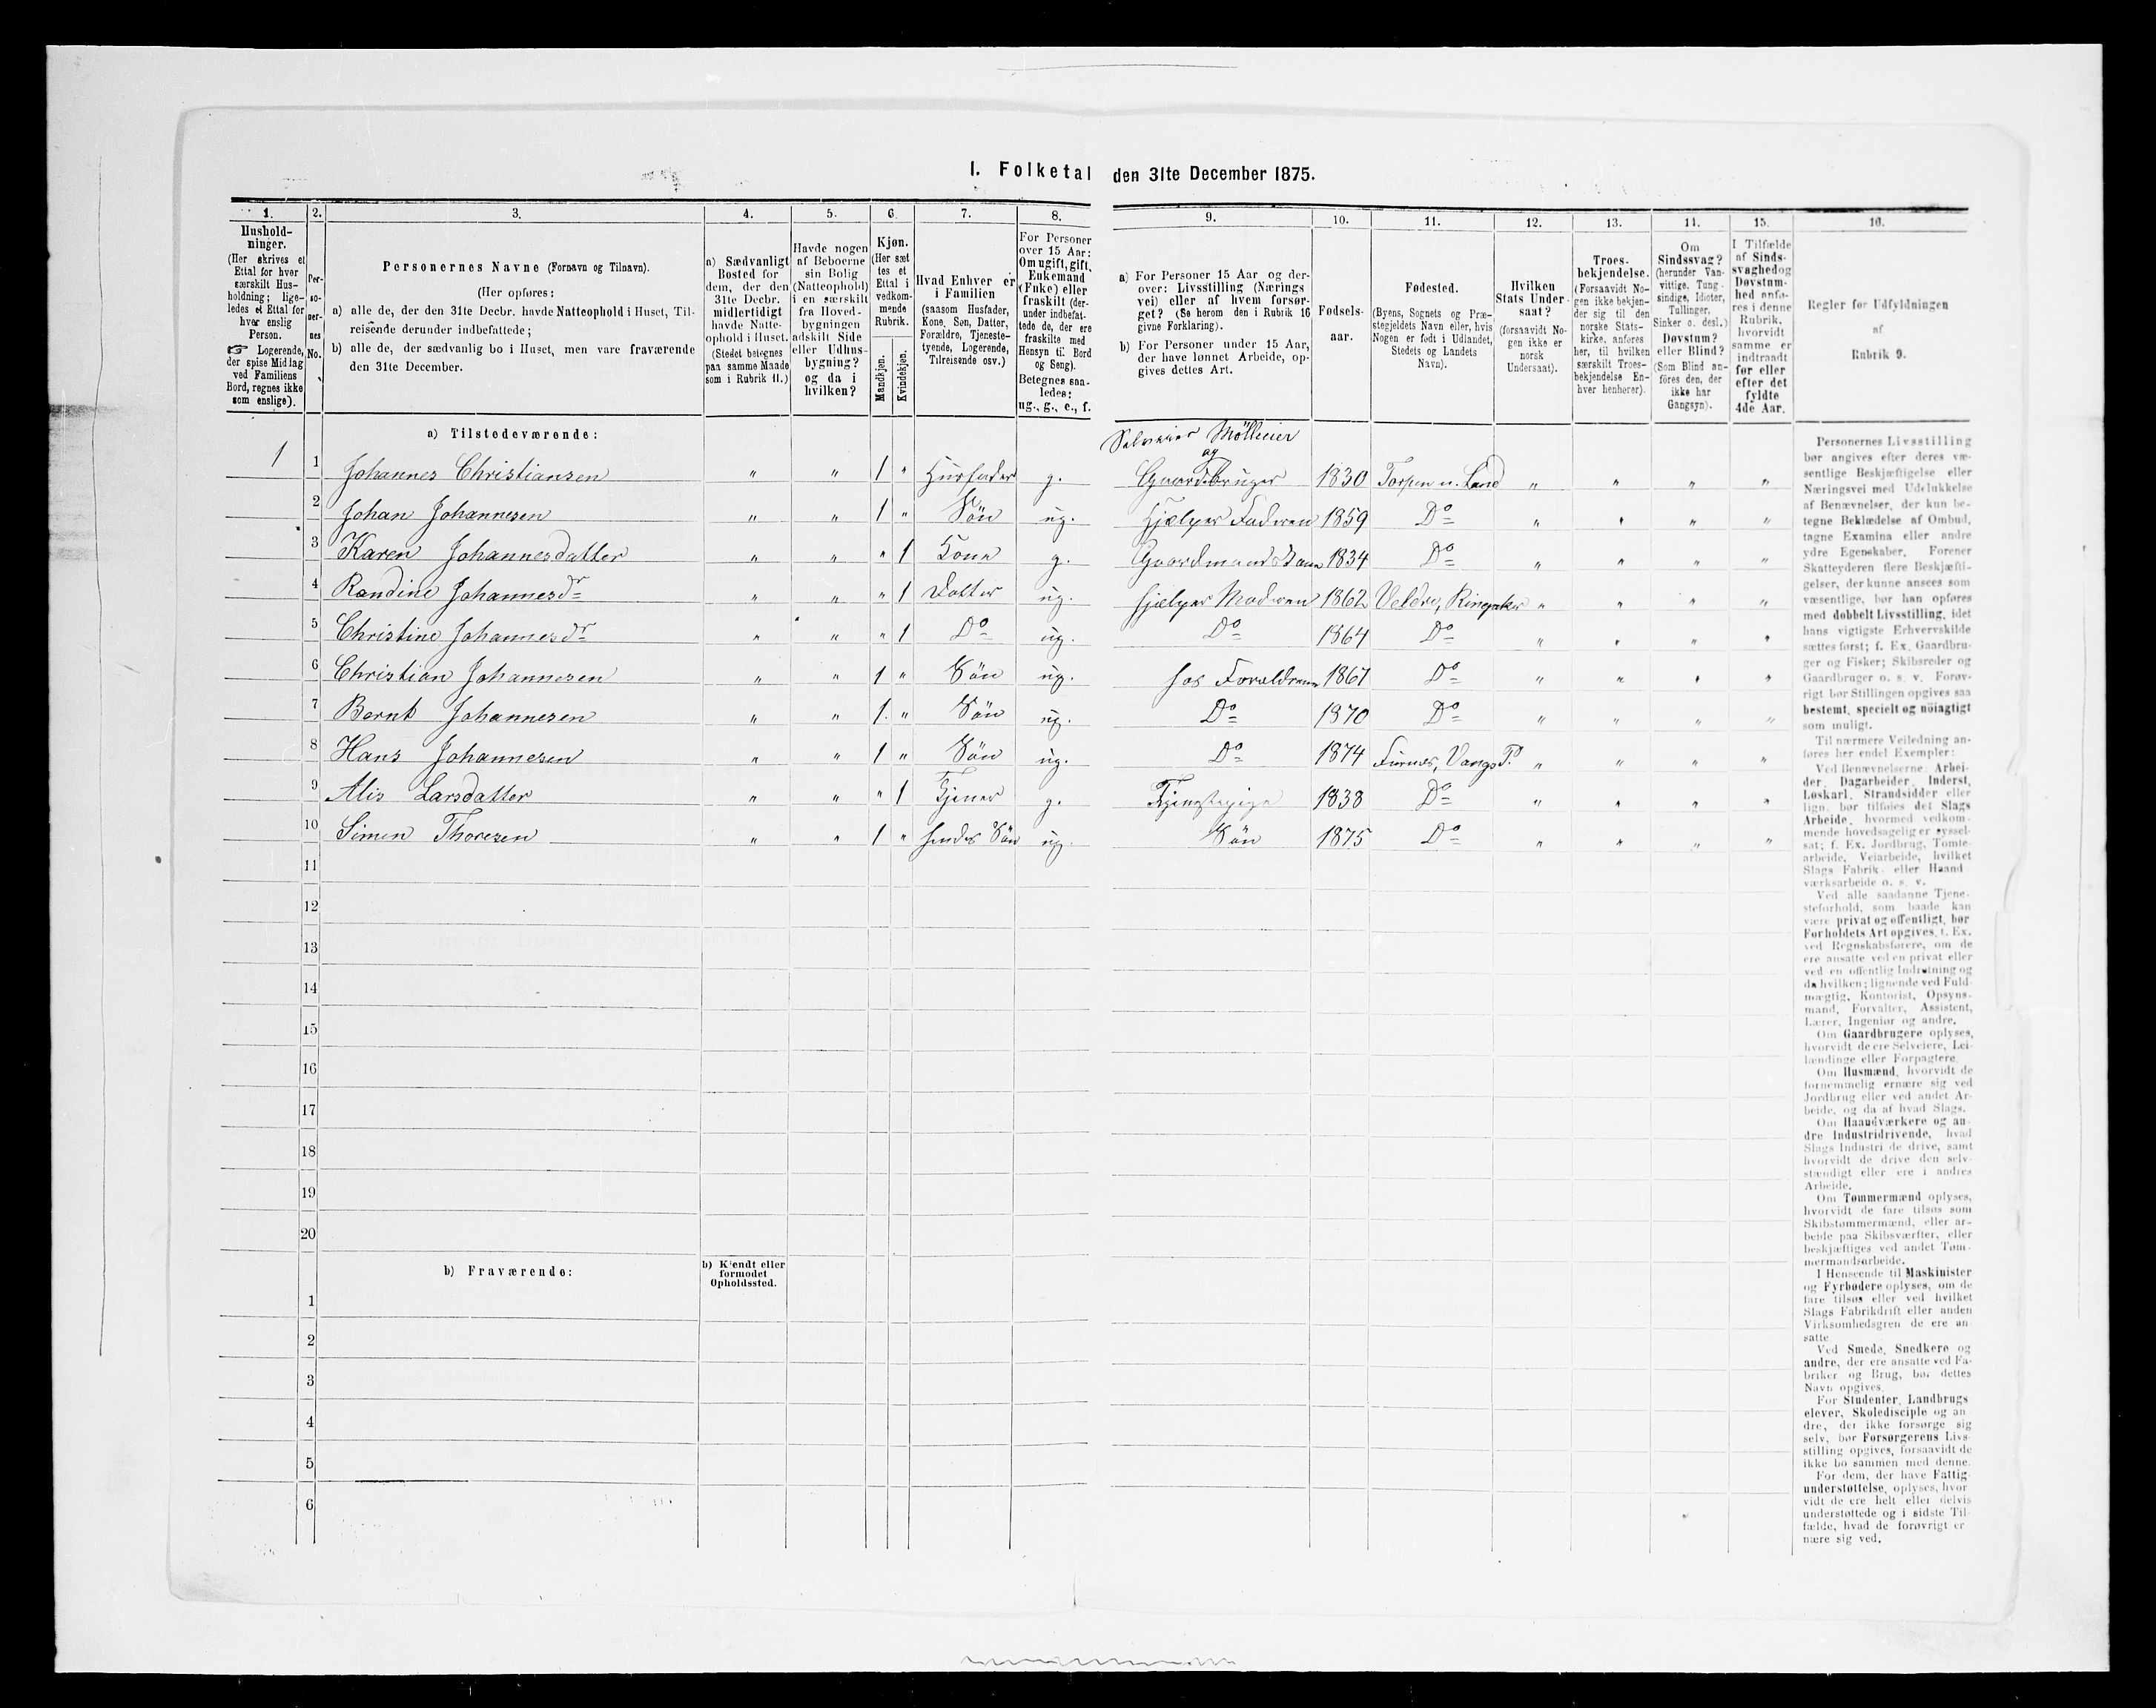 I. Folketal den 31te December 1875.
1. 2. 3. 4. 5. 6. 7. 8. 9. 10. 11. 12. 13. 14. 15. 16.
Hushold-
ninger.
(Her skrives et
Ettal for hver
særskilt Hus-
holdning; lige-
ledes et Ettal for
hver enslig
Person.
☞ Logerende,
der spise Middag
ved Familiens
Bord, regnes ikke
som enslige).
Per-
so-
ner-
nes
No.
Personernes Navne (Fornavn og Tilnavn).
(Her opføres:
a) alle de, der den 31te Decbr. havde Natteophold i Huset, Til-
reisende derunder indbefattede;
b) alle de, der sædvanlig bo i Huset, men vare fraværende
den 31te December.
a) Sædvanligt
Bosted for
dem, der den
31te Decbr.
midlertidigt
havde Natte-
ophold i Huset.
(Stedet betegnes
paa samme Maade
som i Rubrik 11.)
Havde nogen
af Beboerne
sin Bolig
(Natteophold)
i en særskilt
fra Hoved-
bygningen
adskilt Side
eller Udhus-
bygning?
og da i
hvilken?
Kjøn.
(Her sæt
tes et
Ettal i
vedkom-
mende
Rubrik.
Mandkjøn.
Kvindekjøn.
Hvad Enhver er
i Familien
(saasom Husfader,
Kone, Søn, Datter,
Forældre, Tjeneste-
tyende, Logerende,
Tilreisende osv.)
For Personer
over 15 Aar:
Om ugift, gift,
Enkemand
(Enke) eller
fraskilt (der-
under indbefat-
tede de, der ere
fraskilte med
Hensyn til Bord
og Seng).
Betegnes saa-
ledes:
ug., g., e., f.
a) For Personer 15 Aar og der-
over: Livsstilling (Nærings
vei) eller af hvem forsør-
get? (Se herom den i Rubrik 16
givne Forklaring).
b) For Personer under 15 Aar,
der have lønnet Arbeide, op-
gives dettes Art.
Fødsels-
aar.
Fødested.
(Byens, Sognets og Præ-
stegjeldets Navn eller, hvis
Nogen er født i Udlandet,
Stedets og Landets
Navn).
Hvilken
Stats Under-
saat?
(forsaavidt No-
gen ikke er
norsk
Undersaat).
Troes-
bekjendelse.
(Forsaavidt No-
gen ikke bekjen-
der sig til den
norske Stats-
kirke, anføres
her, til hvilken
særskilt Troes-
bekjendelse En-
hver henhører).
Om
Sindssvag?
(herunder Van-
vittige, Tung-
sindige, Idioter,
Tullinger,
Sinker o. desl.)
Døvstum?
eller Blind?
(Som Blind an-
føres den, der
ikke har
Gangsyn).
I Tilfælde
af Sinds-
svaghed og
Døvstum-
hed anfø-
res i denne
Rubrik,
hvorvidt
samme er
indtraadt
før eller
efter det
fyldte
4de Aar.
Regler for Udfyldningen
af
Rubrik 9.
a) Tilstedeværende:
Selveier Mölleeier
og
1 1 Johannes Christiansen " " 1 " Husfader g. Gaardbruger 1830 Torpen n. Land " " " "
2 Johan Johannesen " " 1 " Sön ug. Hjælper Faderen 1859 Do " " " "
3 Karen Johannesdatter " " " 1 Kone g. Gaardmandskone 1834 Do " " " "
4 Randine Johannesdr " " " 1 Datter ug. Hjælper Moderen 1862 Veldre, Ringsaker " " " "
5 Christine Johannesdr " " " 1 Do ug. Do 1864 Do " " " "
6 Christian Johannesen " " 1 " Sön ug. hos Forældrene 1867 Do " " " "
7 Bernt Johannesen " " 1 " Sön ug. Do 1870 Do " " " "
8 Hans Johannesen " " 1 " Sön ug. Do 1874 Furnes, Vangs P. " " " "
9 Alis Larsdatter " " " 1 Tjener g. Tjenstepige 1838 Do " " " "
10 Simen Thoresen " " 1 " hendes Sön ug. Sön 1875 Do " " " "
11
12
13
14
15
16
17
18
19
20
b) Fraværende:
b) Kjendt eller
formodet
Opholdssted.
1
2
3
4
5
6
Personernes Livsstilling
bør angives efter deres væ-
sentlige Beskjæftigelse eller
Næringsvei med Udelukkelse
af Benævnelser, der kun be-
tegne Beklædelse af Ombud,
tagne Examina eller andre
ydre Egenskaber. Forener
Skatteyderen flere Beskjæfti-
gelser, der kunne ansees som
væsentlige, bør han opføres
med dobbelt Livsstilling, idet
hans vigtigste Erhvervskilde
sættes først; f. Ex. Gaardbru-
ger og Fisker; Skibsreder og
Gaardbruger o. s. v. Forøv-
rigt bør Stillingen opgives saa
bestemt, specielt og nöiagtigt
som muligt.
Til nærmere Veiledning an-
føres her endel Exempler:
Ved Benævnelserne: Arbei-
der, Dagarbeider, Inderst,
Løskarl, Strandsidder eller
lign. bør tilføies det Slags
Arbeide, hvormed vedkom-
mende hovedsagelig er syssel-
sat; f. Ex. Jordbrug, Tomte-
arbeide, Veiarbeide, hvilket
Slags Fabrik- eller Haand
værksarbeide o. s. v.
Ved alle saadanne Tjene-
steforhold, som baade kan
være privat og offentligt, bør
Forholdets Art opgives, t. Ex.
ved Regnskabsførere, om de
ere ansatte ved en privat eller
ved en offentlig Indretning og
da hvilken; lignende ved Fuld-
mægtig, Kontorist, Opsyns-
mand, Forvalter, Assistent,
Lærer, Ingeniør og andre.
Om Gaardbrugere oplyses,
hvorvidt de ere Selveiere, Lei-
lændinge eller Forpagtere.
Om Husmænd, hvorvidt de
fornemmelig ernære sig ved
Jordbrug eller ved andet Ar-
beide, og da af hvad Slags.
Om Haandværkere og an-
dre Industridrivende, hvad
Slags Industri de drive, samt
hvorvidt de drive den selv-
stændigt eller ere i andres
Arbeide.
Om Tømmermænd oplyses,
hvorvidt de fare tilsøs som
Skibstømmermænd, eller ar-
beide paa Skibsværfter, eller
beskjæftiges ved andet Tøm-
mermandsarbeide.
I Henseende til Maskinister
og Fyrbødere oplyses, om de
fare tilsøs eller ved hvilket
Slags Fabrikdrift eller anden
Virksomhedsgren de ere an-
satte.
Ved Smede, Snedkere og
andre, der ere ansatte ved Fa-
briker og Brug, bør dettes
Navn opgives.
For Studenter, Landbrugs
elever, Skoledisciple og an
dre, der ikke forsørge sig
selv, bør Forsørgerens Livs-
stilling opgives, forsaavidt de
ikke bo sammen med denne.
For dem, der have Fattig-
understøttelse, oplyses, hvor
vidt de ere helt eller delvis
understøttede og i sidste Til-
fælde, hvad de forøvrigt er
nære sig ved.